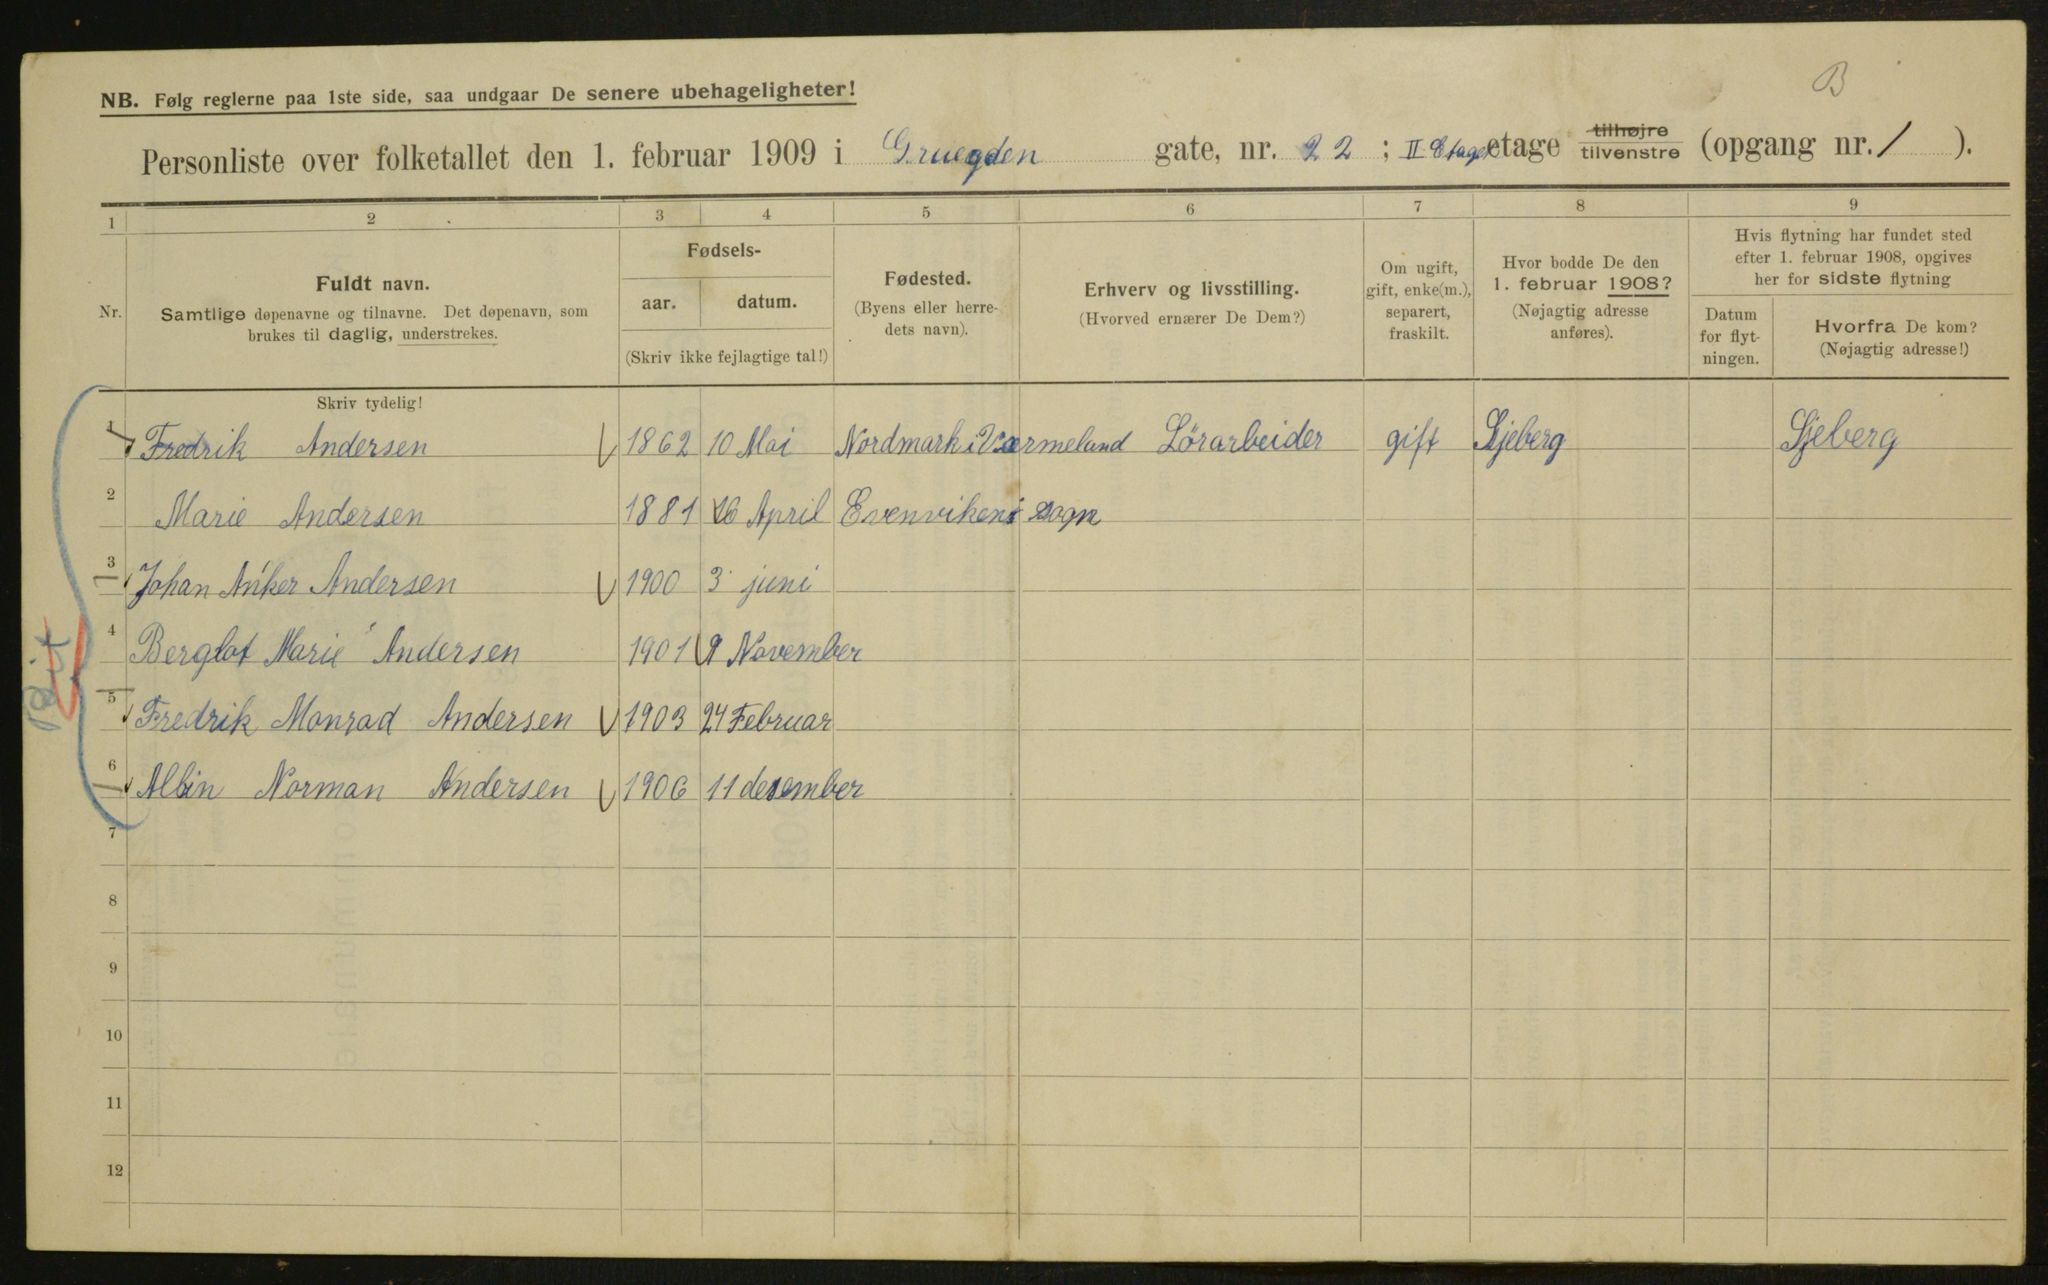 B
NB. Følg reglerne paa 1ste side, saa undgaar De senere ubehageligheter!
Personliste over folketallet den 1. februar 1909 i Gruegden gate, nr. 22; II Etage etage tilhøjre tilvenstre (opgang nr. 1).
1 2 3 4 5 6 7 8 9
Nr.
Fuldt navn.
Samtlige døpenavne og tilnavne. Det døpenavn, som
brukes til daglig, understrekes.
Fødsels-
aar. datum.
(Skriv ikke fejlagtige tal!)
Fødested.
(Byens eller herre-
dets navn).
Erhverv og livsstilling.
(Hvorved ernærer De Dem?)
Om ugift,
gift, enke(m.),
separert,
fraskilt.
Hvor bodde De den
1. februar 1908?
(Nøjagtig adresse
anføres).
Hvis flytning har fundet sted
efter 1. februar 1908, opgives
her for sidste flytning
Datum
for flyt-
ningen.
Hvorfra De kom?
(Nøjagtig adresse!)
Skriv tydelig!
1 Fredrik Andersen 1862 10 Mai Nordmark i Værmeland Lörarbeider gift Sjeberg Sjeberg
2 Marie Andersen 1881 16 April Evenviken i Sogn
3 Johan Anker Andersen 1900 3 juni
4 Berglot Marie Andersen 1901 9 November
5 Fredrik Monrad Andersen 1903 24 Februar
6 Albin Norman Andersen 1906 11 desember
7
8
9
10
11
12